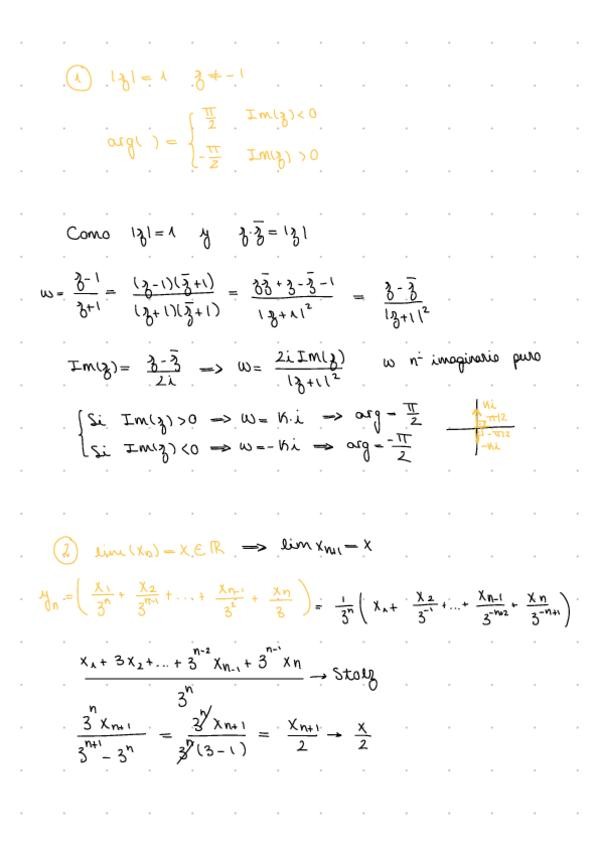 ① |z| = 1   z ≠ -1
arg( ) = { π/2   Im(z) < 0
-π/2   Im(z) > 0
Como |z| = 1 y z·z̄ = |z|
w = (z-1)/(z+1) = ((z-1)(z̄+1))/((z+1)(z̄+1)) = (zz̄ + z - z̄ - 1)/|z+1|² = (z - z̄)/|z+1|²
Im(z) = (z - z̄)/2i ⟹ w = (2i Im(z))/|z+1|²   w nº imaginario puro
{ Si Im(z) > 0 ⟹ w = K·i ⟹ arg = π/2
Si Im(z) < 0 ⟹ w = -Ki ⟹ arg = -π/2
Ki
π/2
-π/2
-Ki
② lim(xₙ) = x ∈ ℝ ⟹ lim xₙ₊₁ = x
yₙ = (x₁/3ⁿ + x₂/3ⁿ⁻¹ + ... + xₙ₋₁/3² + xₙ/3) = 1/3ⁿ (x₁ + x₂/3⁻¹ + ... + xₙ₋₁/3⁻ⁿ⁺² + xₙ/3⁻ⁿ⁺¹)
(x₁ + 3x₂ + ... + 3ⁿ⁻² xₙ₋₁ + 3ⁿ⁻¹ xₙ)/3ⁿ → Stolz
(3ⁿ xₙ₊₁)/(3ⁿ⁺¹ - 3ⁿ) = (3ⁿ xₙ₊₁)/(3ⁿ(3-1)) = xₙ₊₁/2 → x/2